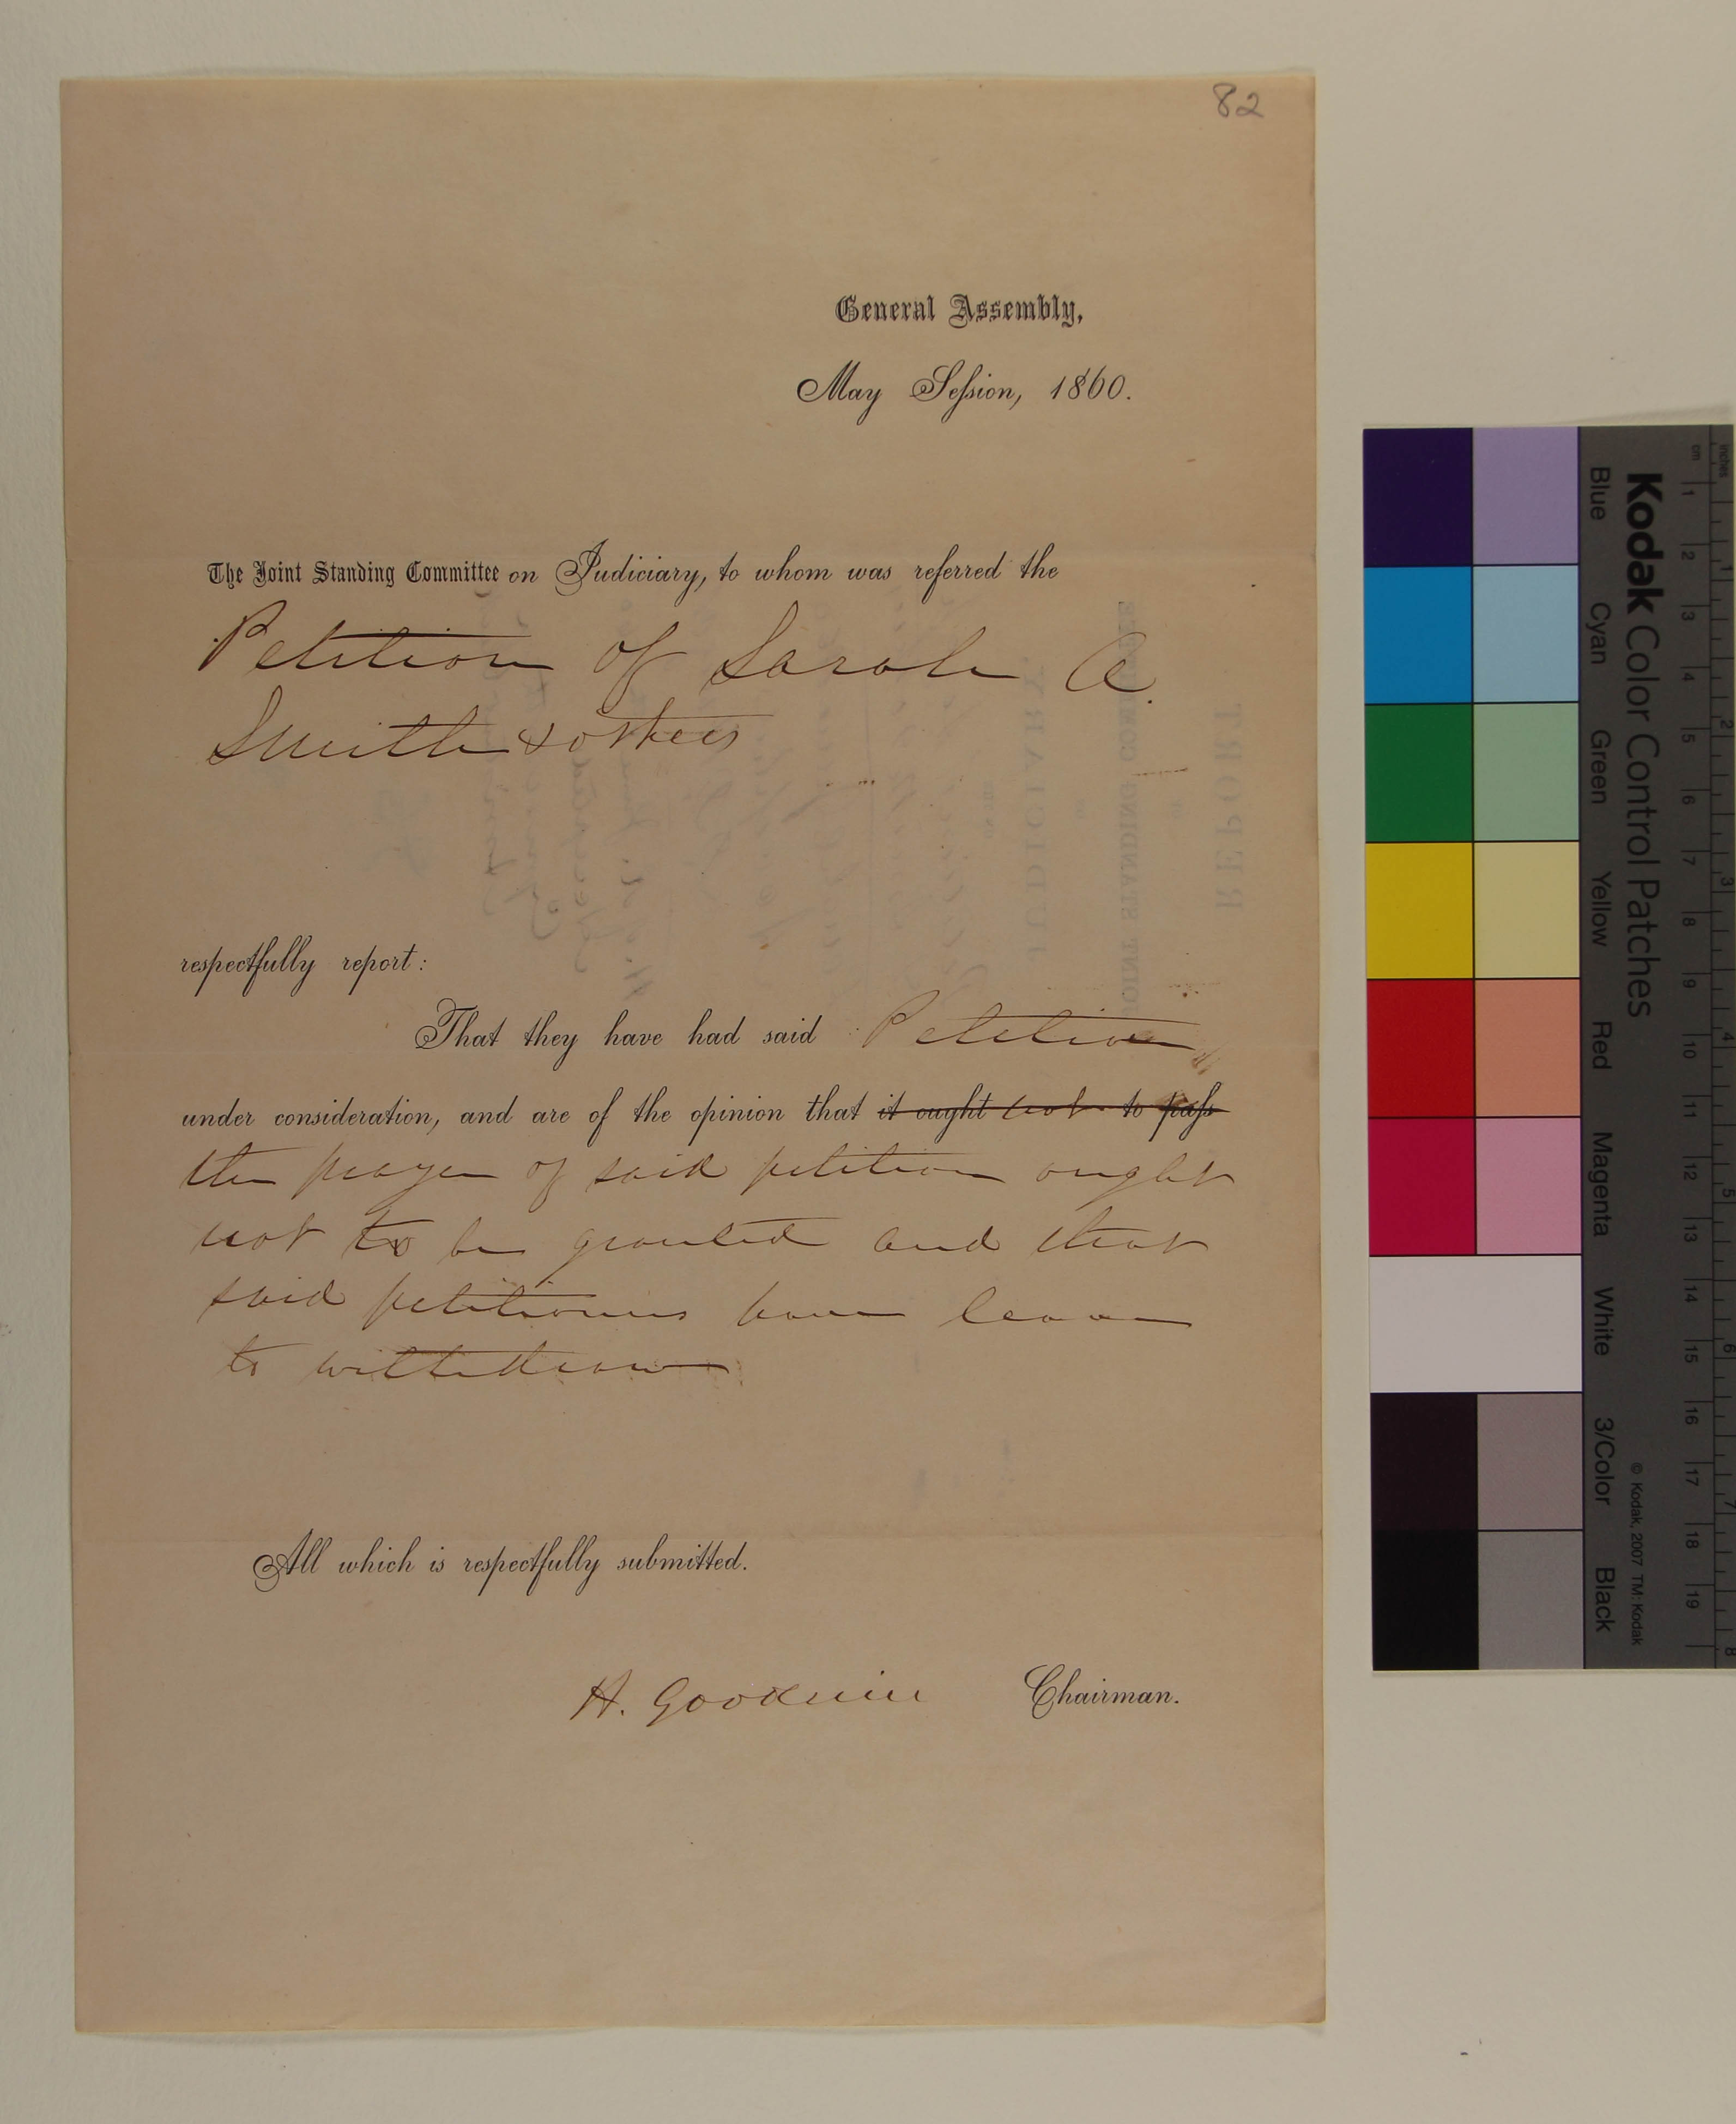 82
General Assembly,
May Session, 1860.
The Joint Standing Committee on Judiciary, to whom was referred the
Petition of Sarah A.
Smith & others
respectfully report:
That they have had said Petition
under consideration, and are of the opinion that it ought not to pass
the prayer of said petition ought
not to be granted and that
said petitioners have leave
to withdraw
All which is respectfully submitted.
H. Goodwin Chairman.
REPORT
JOINT STANDING
JUDICIARY
Kodak Color Control Patches
Blue Cyan Green Yellow Red Magenta White 3/Color Black
© Kodak, 2007 TM: Kodak
inches 1 2 3 4 5 6 7 8
cm 1 2 3 4 5 6 7 8 9 10 11 12 13 14 15 16 17 18 19